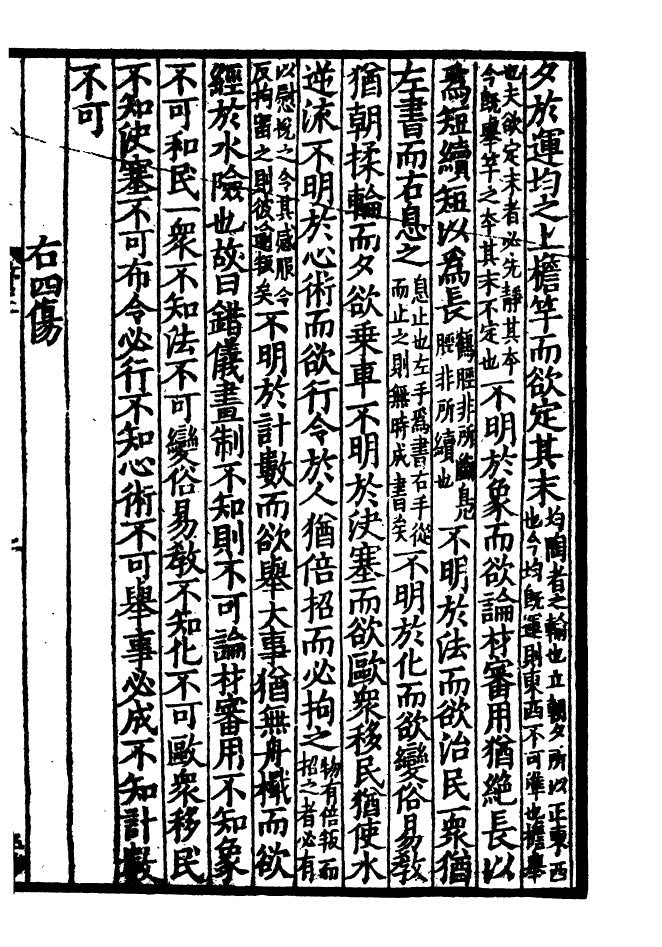 夕於運均之上檐竿而欲定其末均陶者之輪也立朝夕所以正東西也今均旣運則東西不可準也檐舉
也夫欲定末者必先靜其本今旣舉竿之本其末不定也不明於象而欲論材審用猶絕長以
爲短續短以爲長鶴脛非所斷鳧脛非所續也不明於法而欲治民一衆猶
左書而右息之息止也左手爲書右手從而止之則無時成書矣不明於化而欲變俗易教
猶朝揉輪而夕欲乗車不明於决塞而欲歐衆移民猶使水
逆流不明於心術而欲行令於人猶倍招而必拘之物有倍叛而招之者必有
以慰悅之令其感服今反拘畱之則彼逾叛矣不明於計數而欲舉大事猶無舟檝而欲
經於水險也故曰錯儀畫制不知則不可論材審用不知象
不可和民一衆不知法不可變俗易教不知化不可歐衆移民
不知决塞不可布令必行不知心術不可舉事必成不知計數
不可
右四傷